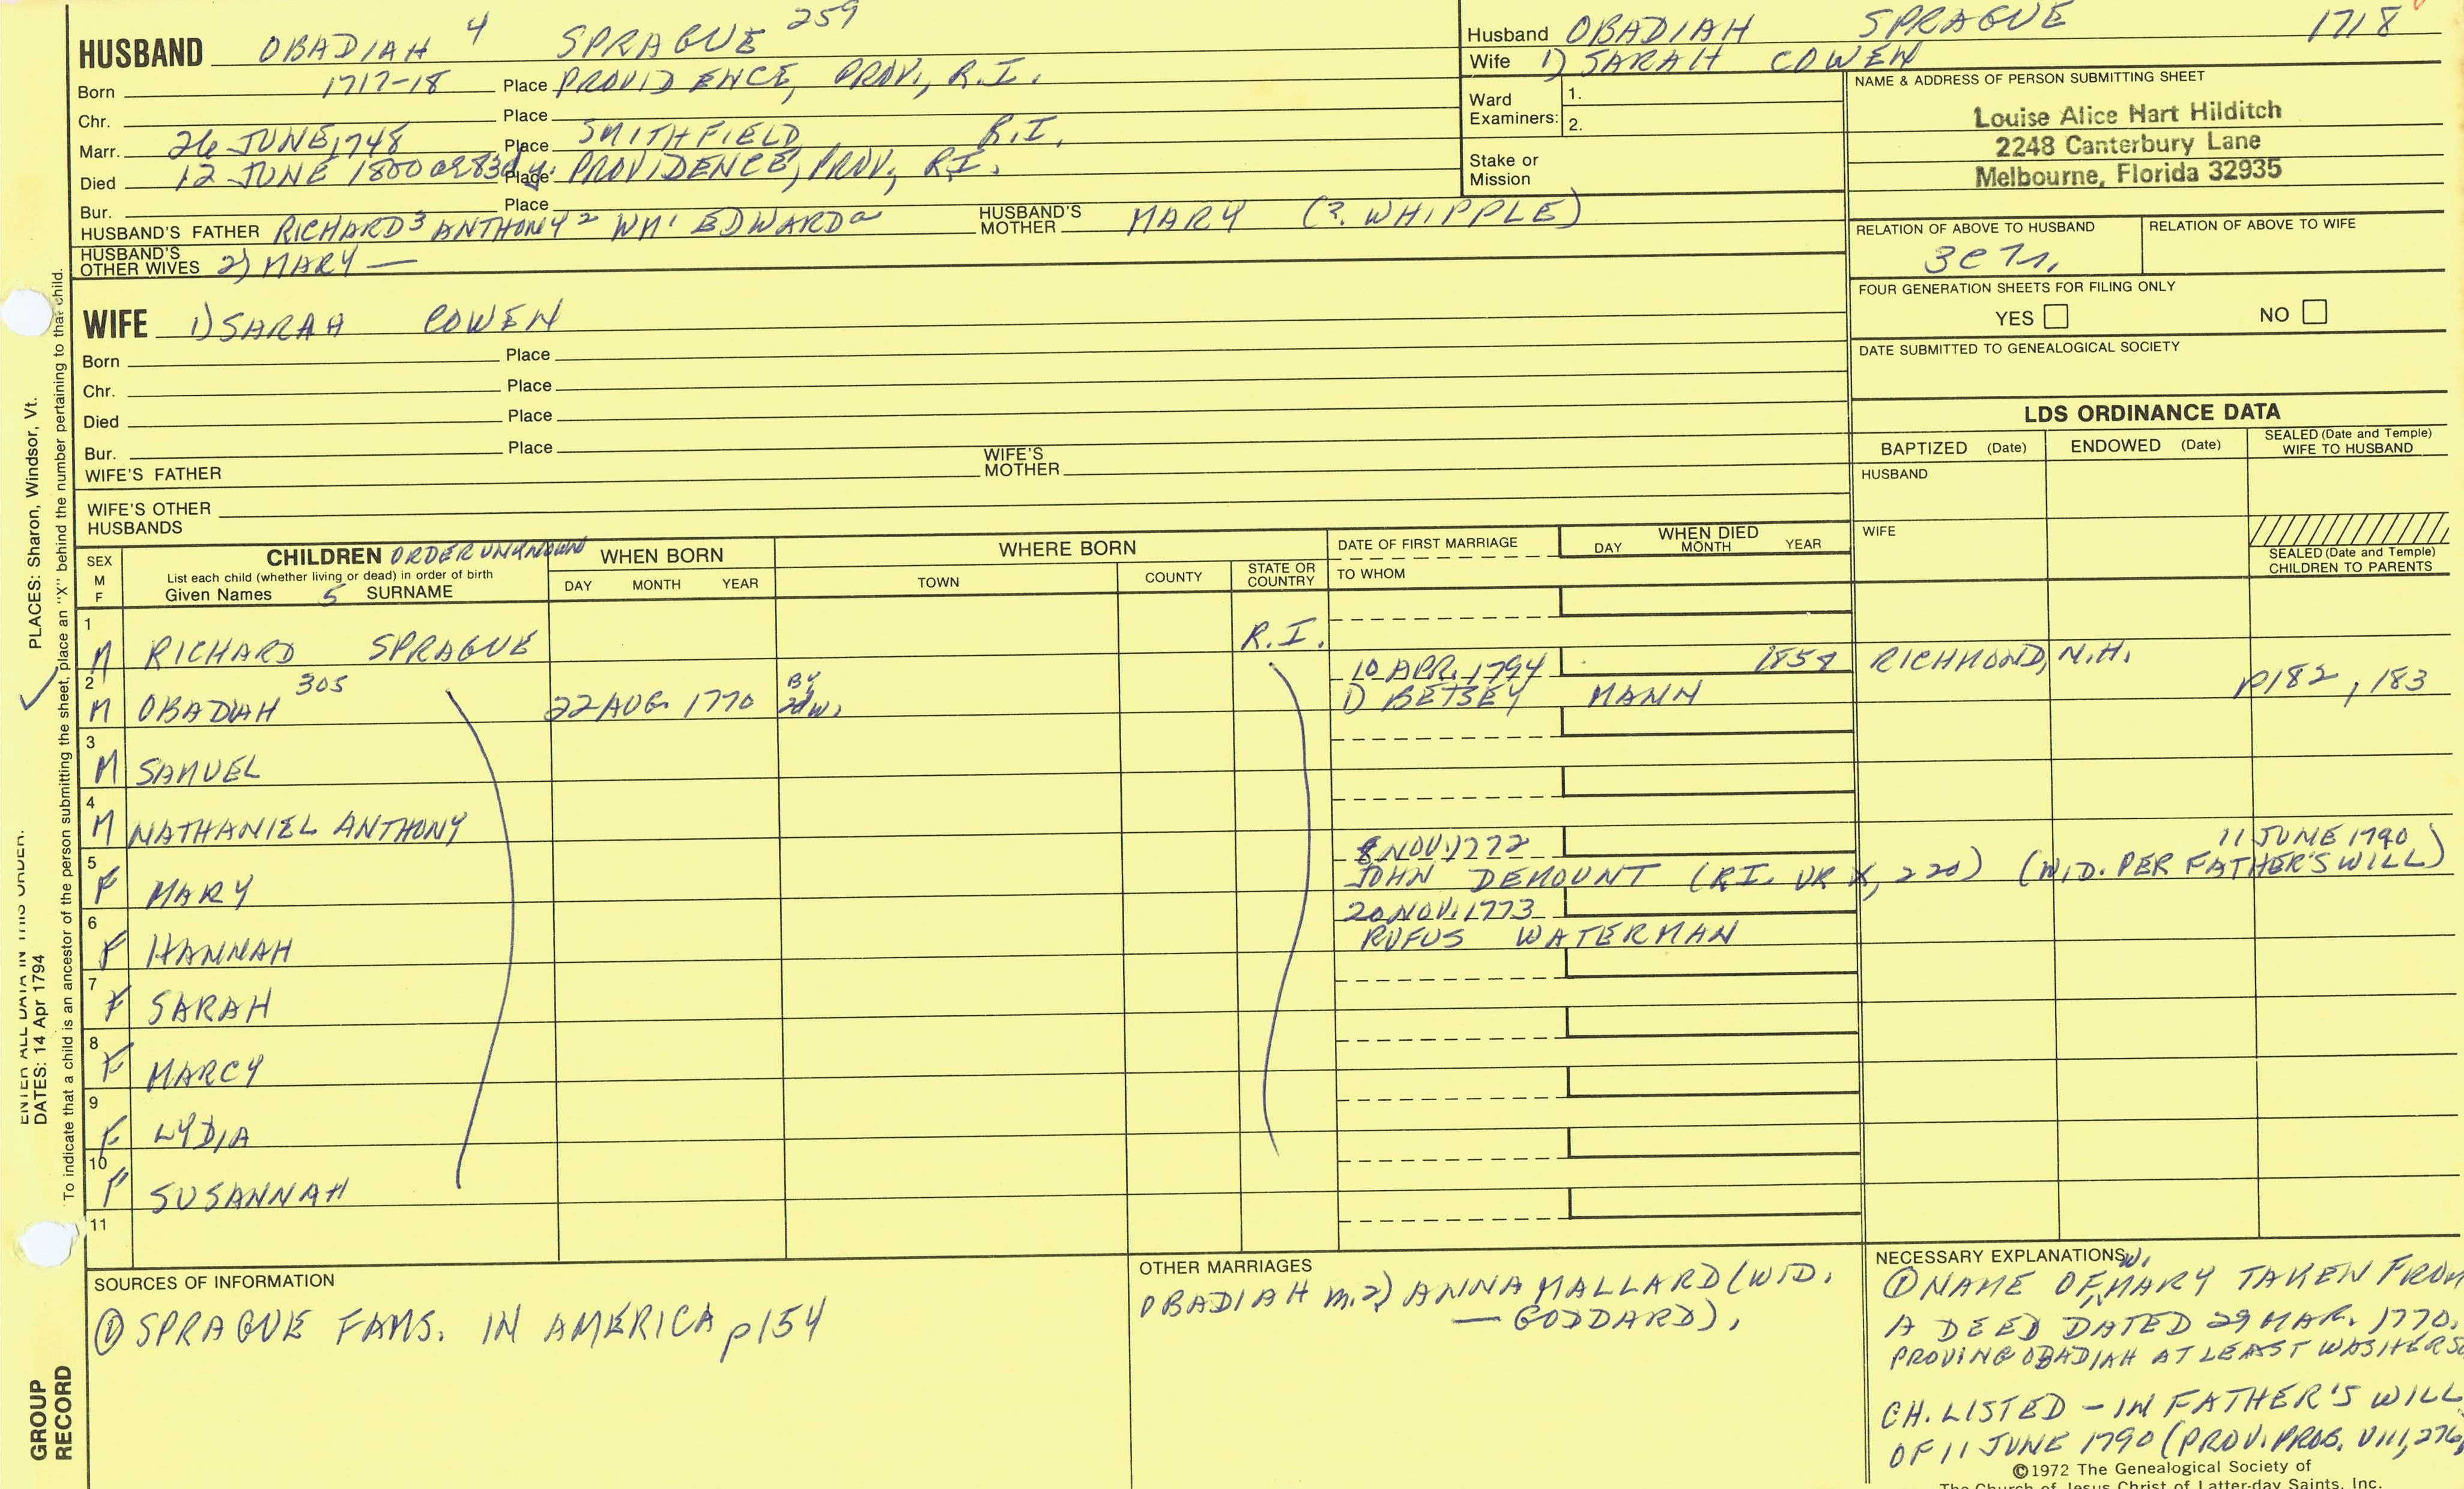 HUSBAND OBADIAH 4 SPRAGUE 259
Born 1717-18 Place PROVIDENCE, PROV., R.I.
Chr. Place
Marr. 26 JUNE 1748 Place SMITHFIELD R.I.
Died 12 JUNE 1800 Place PROVIDENCE, PROV., R.I.
Bur. Place
HUSBAND'S FATHER RICHARD 3 ANTHONY 2 WM 1 EDWARD a HUSBAND'S MOTHER MARY (?. WHIPPLE)
HUSBAND'S OTHER WIVES 2) MARY —
WIFE 1) SARAH COWEN
Born Place
Chr. Place
Died Place
Bur. Place
WIFE'S FATHER WIFE'S MOTHER
WIFE'S OTHER HUSBANDS
Husband OBADIAH SPRAGUE 1718
Wife 1) SARAH COWEN
Ward Examiners: 1.
2.
Stake or Mission
NAME & ADDRESS OF PERSON SUBMITTING SHEET
Louise Alice Hart Hilditch
2248 Canterbury Lane
Melbourne, Florida 32935
RELATION OF ABOVE TO HUSBAND RELATION OF ABOVE TO WIFE
FOUR GENERATION SHEETS FOR FILING ONLY
YES NO
DATE SUBMITTED TO GENEALOGICAL SOCIETY
LDS ORDINANCE DATA
BAPTIZED (Date) ENDOWED (Date) SEALED (Date and Temple) WIFE TO HUSBAND
HUSBAND
WIFE
SEALED (Date and Temple) CHILDREN TO PARENTS
SEX M F CHILDREN ORDER UNKNOWN WHEN BORN WHERE BORN DATE OF FIRST MARRIAGE WHEN DIED
List each child (whether living or dead) in order of birth
Given Names 5 SURNAME DAY MONTH YEAR TOWN COUNTY STATE OR COUNTRY TO WHOM DAY MONTH YEAR
1 M RICHARD SPRAGUE R.I.
2 M OBADIAH 305 22 AUG. 1770 BY 2d W. 10 APR. 1794 1) BETSEY MANN RICHMOND, N.H. p182, 183
3 M SAMUEL
4 M NATHANIEL ANTHONY
5 F MARY 8 NOV. 1772 JOHN DEMOUNT (R.I. VR X, 220) (WID. PER FATHER'S WILL) 11 JUNE 1790
6 F HANNAH 20 NOV. 1773 RUFUS WATERMAN
7 F SARAH
8 F MARCY
9 F LYDIA
10 F SUSANNAH
11
SOURCES OF INFORMATION
① SPRAGUE FAMS. IN AMERICA p154
OTHER MARRIAGES
OBADIAH m. 2) ANNA MALLARD (WID.
— GODDARD).
NECESSARY EXPLANATIONS
① NAME OF W. MARY TAKEN FROM
A DEED DATED 29 MAR. 1770.
PROVING OBADIAH AT LEAST WAS HERS
CH. LISTED - IN FATHER'S WILL
OF 11 JUNE 1790 (PROV. PROB. VIII, 276
©1972 The Genealogical Society of
The Church of Jesus Christ of Latter-day Saints, Inc.
PLACES: Sharon, Windsor, Vt.
ENTER ALL DATA IN THIS ORDER:
DATES: 14 Apr 1794
To indicate that a child is an ancestor of the person submitting the sheet, place an "X" behind the number pertaining to that child.
GROUP
RECORD